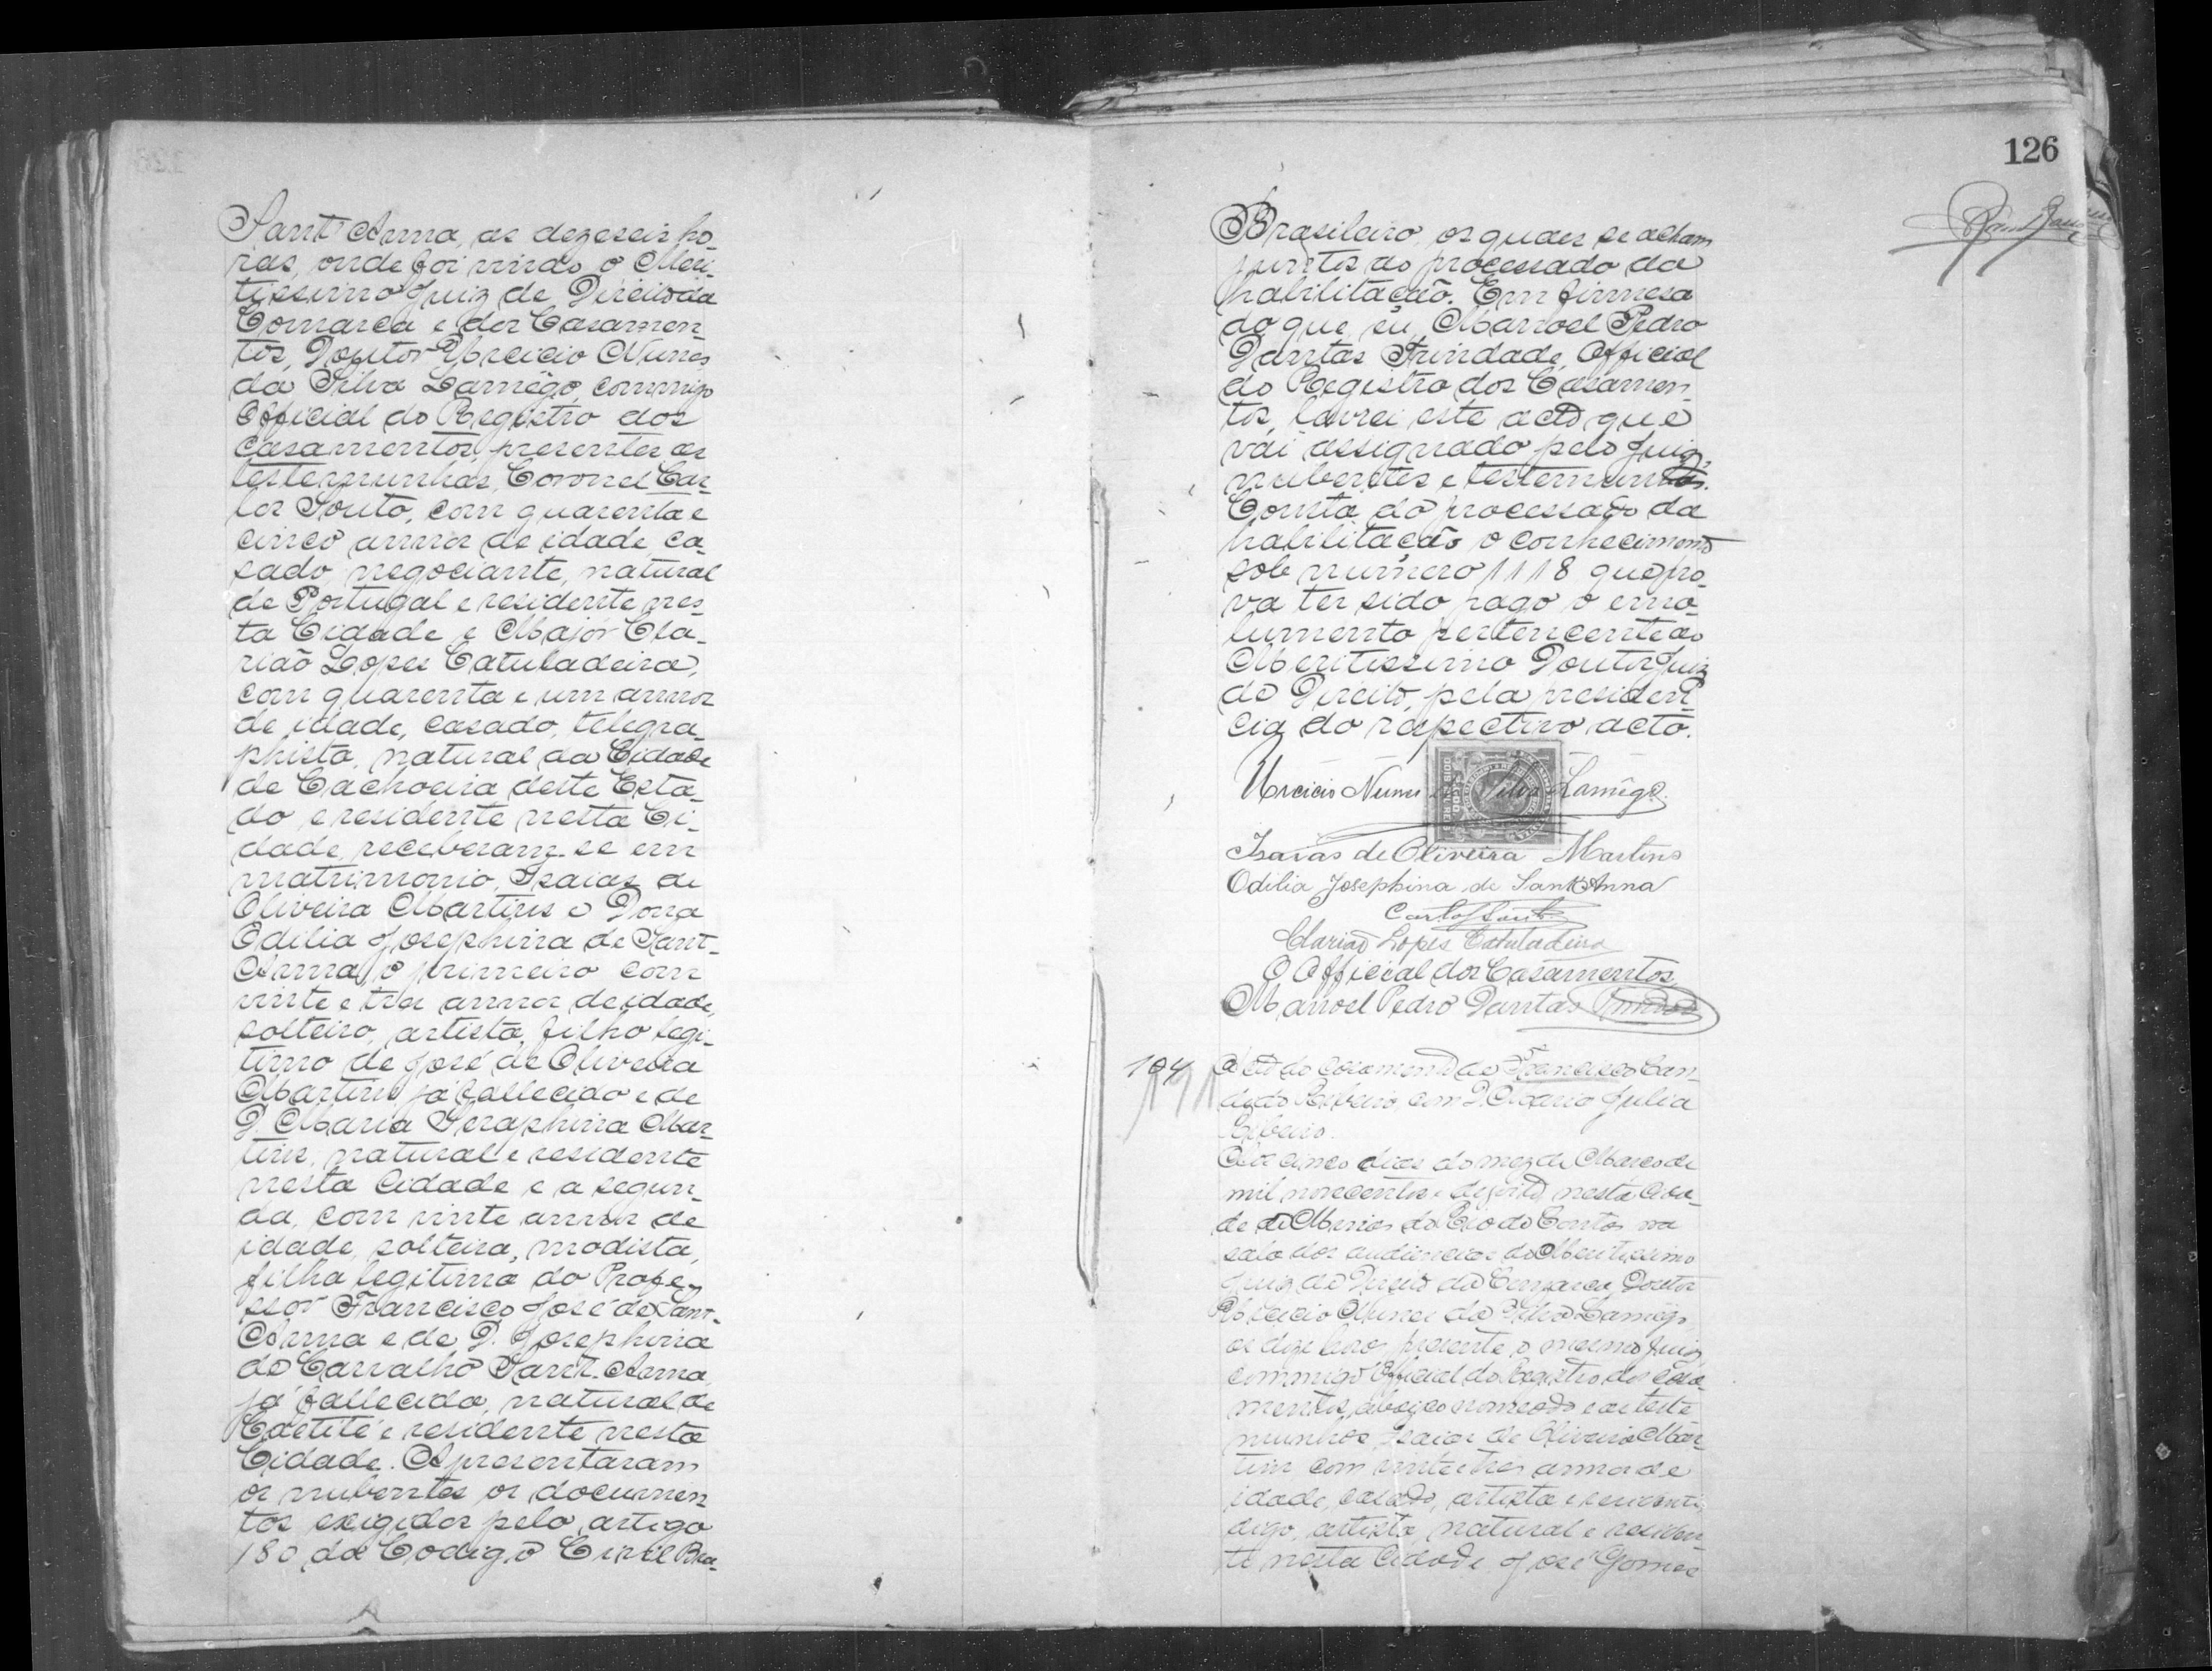 Sant'Anna, as dezeseis ho-
ras, onde foi vindo o Meri-
tissimo Juiz de Direito da
Comarca e dos Casamen-
tos, Doutor Urcicio Nunes
da Silva Lamêgo, commigo
Official do Registro dos
Casamentos, presentes as
testemunhas, Coronel Car-
los Souto, com quarenta e
cinco annos de idade, ca-
sado, negociante, natural
de Portugal e residente nes-
ta Cidade e Major Cla-
rião Lopes Catuladeira,
com quarenta e um annos
de idade, casado, telegra-
phista, natural da Cidade
de Cachoeira deste Esta-
do e residente nesta Ci-
dade, receberam-se em
matrimonio, Isaias de
Oliveira Martins e Dona
Odilia Josephina de Sant-
Anna, o primeiro com
vinte e tres annos de idade,
solteiro, artista, filho legi-
timo de José de Oliveira
Martins, já fallecido e de
D. Maria Seraphina Mar-
tins, natural e residente
nesta Cidade e a segun-
da, com vinte annos de
idade, solteira, modista,
filha legitima do Profe-
ssor Francisco José de Sant-
Anna e de D. Josephina
de Carvalho Sant-Anna,
já fallecida, natural de
Caetité e residente nesta
Cidade. Apresentaram
os nubentes os documen
tos exigidos pelo artigo
180 do Codigo Civil Bra-
126
Brasileiro, os quaes se acham
juntos ao processado da
habilitação. Em firmesa
do que, eu, Manoel Pedro
Dantas Trindade, Official
do Registro dos Casamen-
tos, lavrei este acto que
vai assignado pelo Juiz,
nubentes e testemunhas.
Consta do processado da
habilitação o conhecimento
sob numero 1118 que pro-
va ter sido pago o emo-
lumento pertencente ao
Meritissimo Doutor Juiz
de Direito, pela presiden-
cia do respectivo acto.
Urcicio Nunes da Silva Lamêgo
Isaias de Oliveira Martins
Odilia Josephina de Sant'Anna
Carlos Souto
Clarião Lopes Catuladeira
O Official dos Casamentos,
Manoel Pedro Dantas Trindade
104 Acto do casamento de Francisco Can-
dido Ribeiro, com D. Maria Julia
191 Ribeiro.
Aos cinco dias do mez de Março de
mil novecentos e dezoito, nesta Cida-
de de Minas do Rio de Contas na
sala das audiencias do Meritissimo
Juiz de Direito da Comarca, Doutor
Urcicio Nunes da Silva Lamêgo,
as dez horas, presente o mesmo Juiz,
commigo Official do Registro dos Casa-
mentos, abaixo nomeado e as teste
munhas, Isaias de Oliveira Mar-
tins com vinte e tres annos de
idade, casado, artista e
digo, artista, natural e residen-
te nesta Cidade, José Gomes